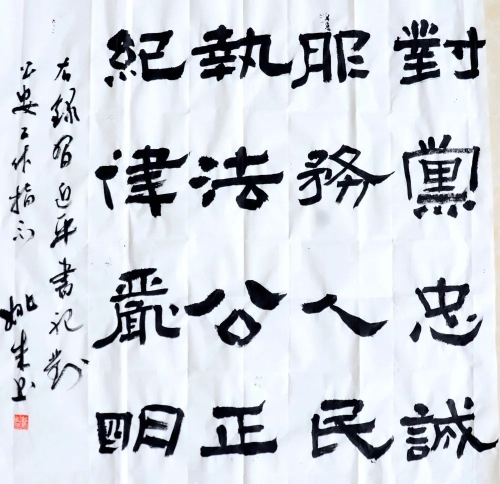 對黨忠誠
服務人民
執法公正
紀律嚴明
右錄習近平書記對
公安工作指示